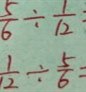 5/6 ÷ 1/12 =
1/12 ÷ 5/6 =